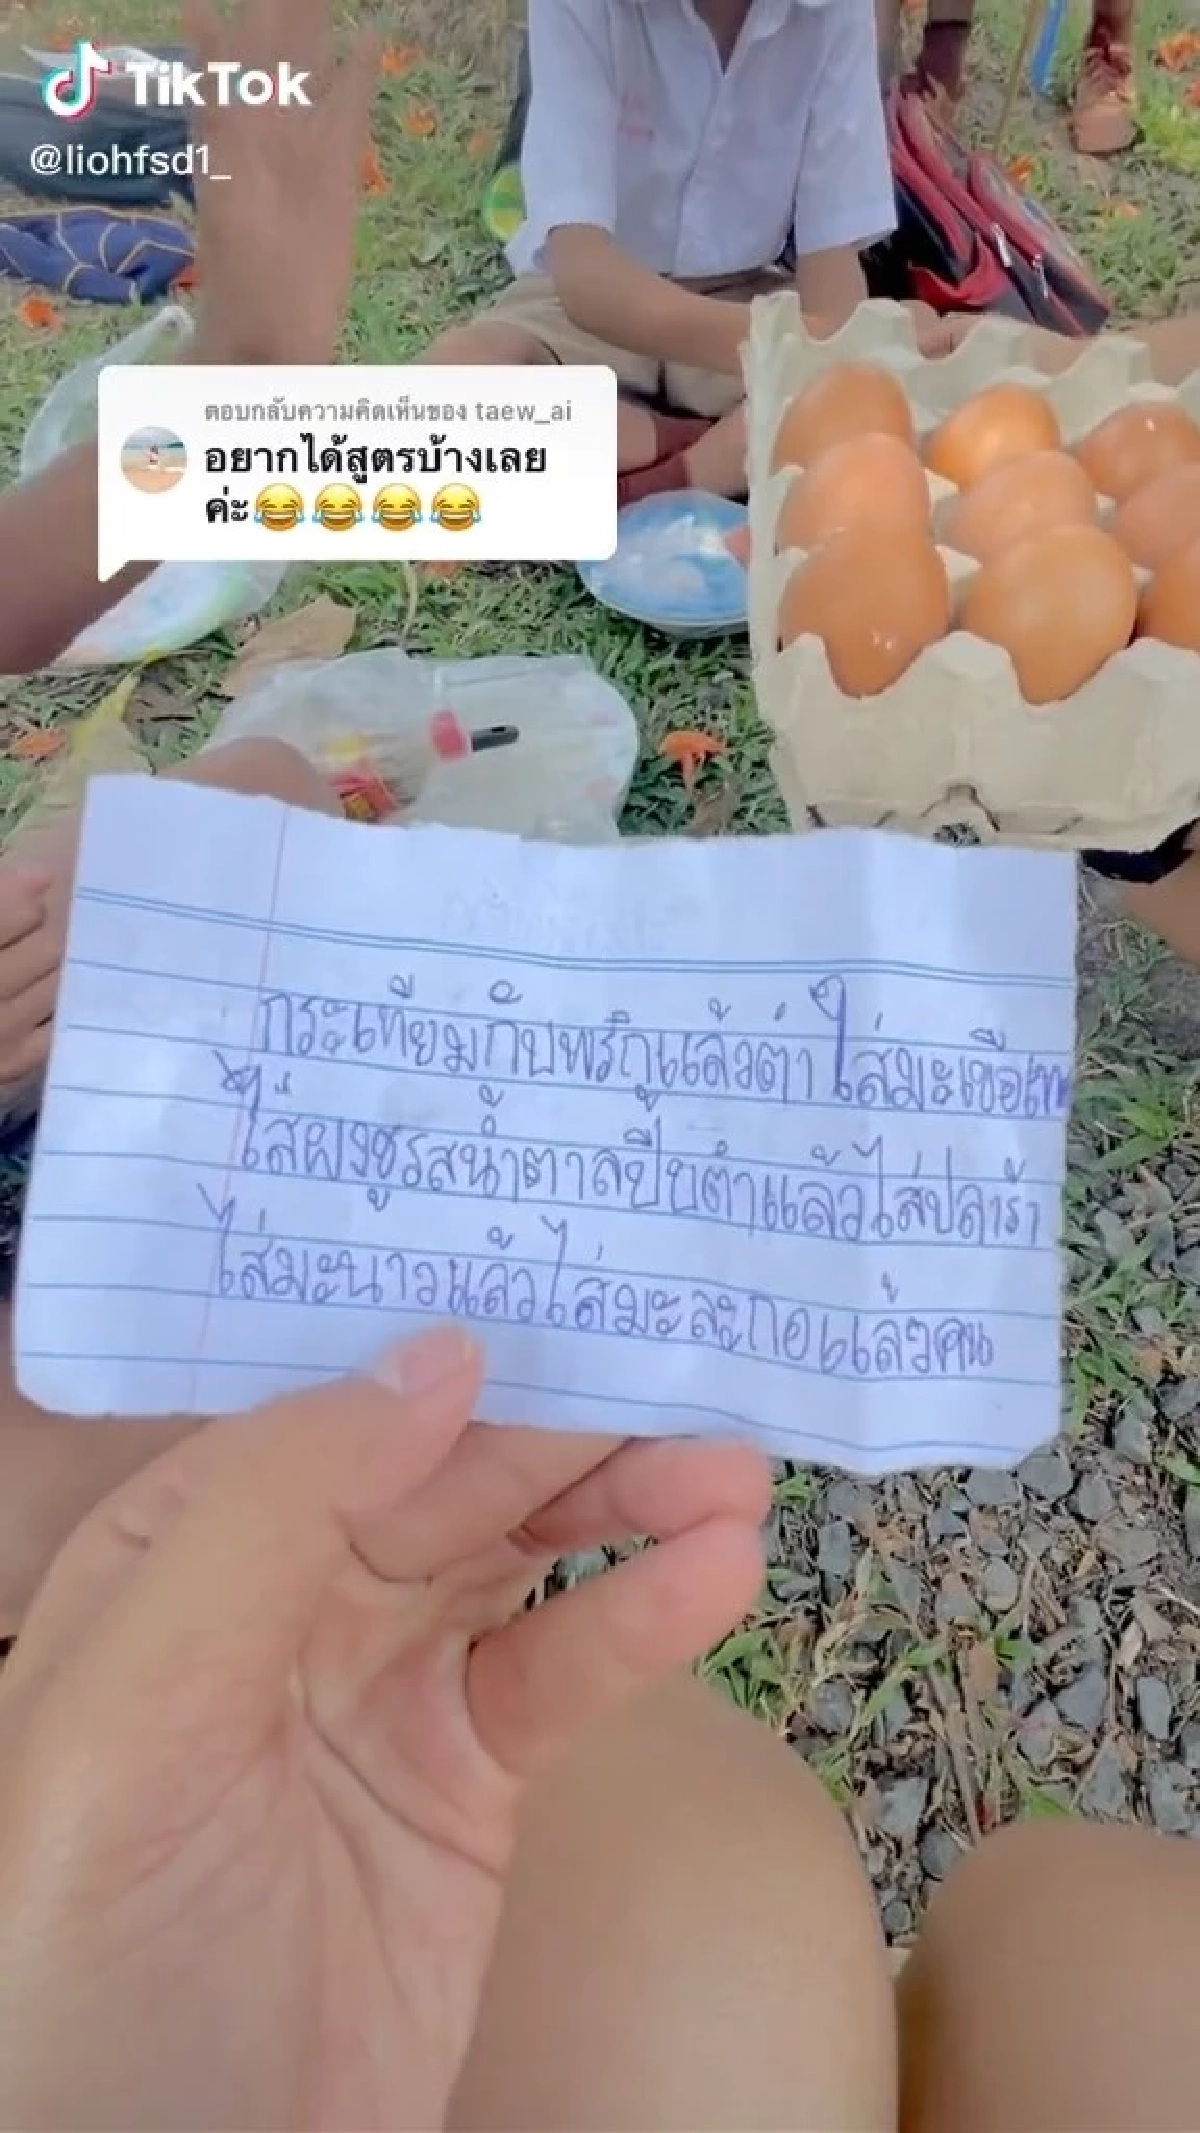 TikTok
@liohfsd1_
ตอบกลับความคิดเห็นของ taew_ai
อยากได้สูตรบ้างเลย
ค่ะ😂😂😂😂
กระเทียมกับพริกแล้วตำ ใส่มะเขือเท
ใส่ผงชูรสน้ำตาลปีบตำแล้วใส่ปลาร้า
ใส่มะนาวแล้วใส่มะละกอแล้วคน